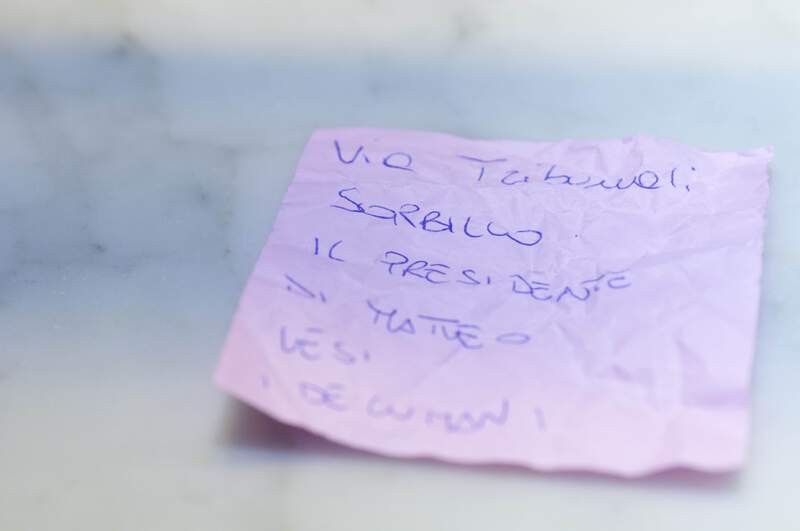 Via Tribunali
SORBILLO
IL PRESIDENTE
DI MATTEO
VESI
I DECUMANI